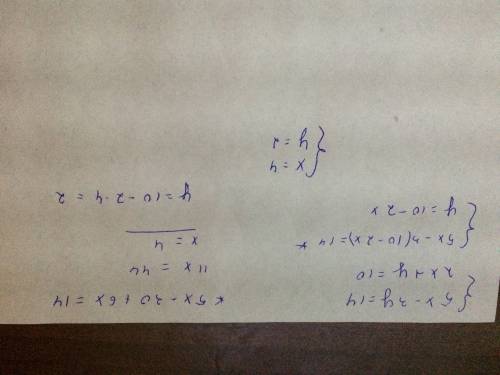 { 5x - 3y = 14
2x + y = 10
{ 5x - 3(10 - 2x) = 14 *
y = 10 - 2x
* 5x - 30 + 6x = 14
11x = 44
x = 4
y = 10 - 2·4 = 2
{ x = 4
y = 2